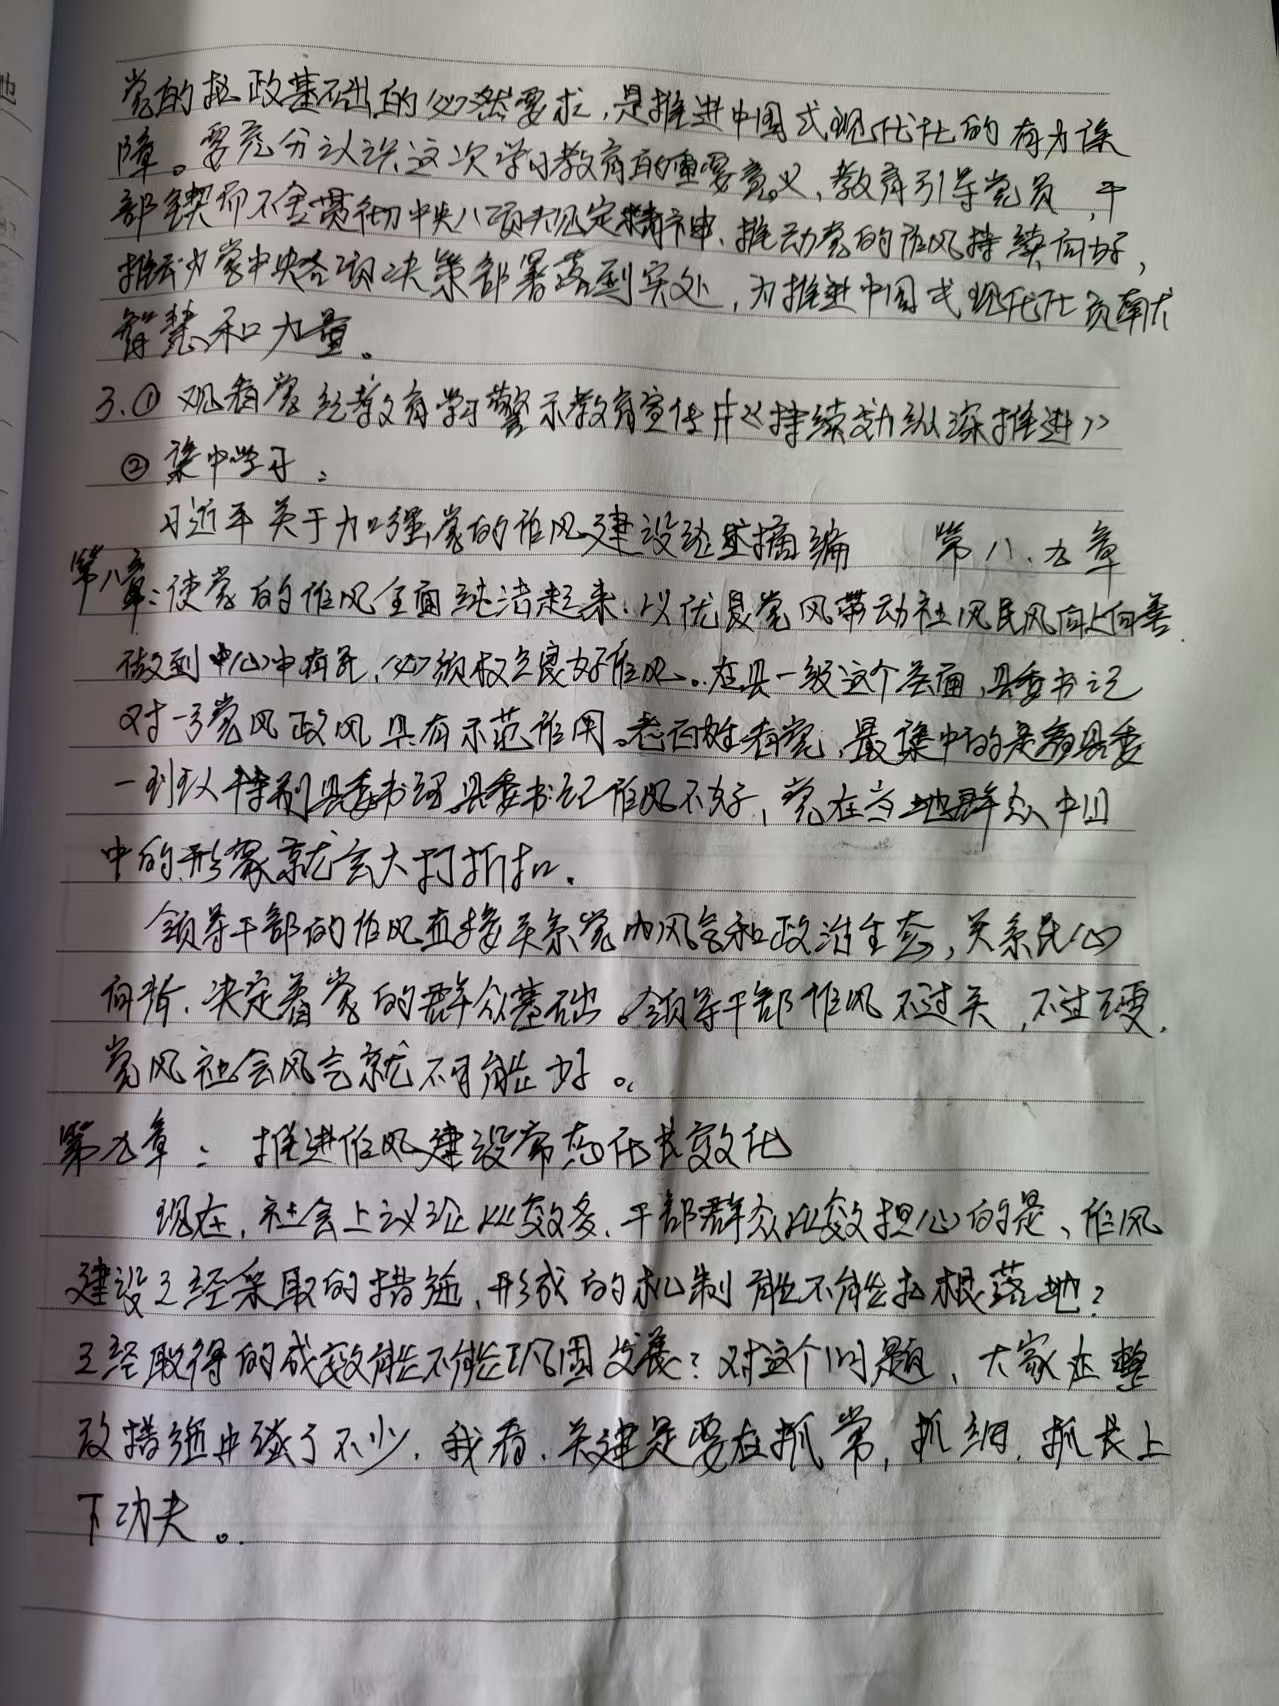 党的执政基础的必然要求,是推进中国式现代化的有力保
障。要充分认识这次学习教育的重要意义,教育引导党员,干
部锲而不舍贯彻中央八项规定精神,推动党的作风持续向好,
推动党中央各项决策部署落到实处,为推进中国式现代化贡献
智慧和力量。
3.① 观看党纪教育学习警示教育宣传片《持续发力纵深推进》
② 集中学习:
习近平关于加强党的作风建设论述摘编 第八、九章
第八章:使党的作风全面纯洁起来,以优良党风带动社风民风向上向善.
做到心中有民,必须树立良好作风。在县一级这个层面,县委书记
对一方党风政风具有示范作用。老百姓看党,最集中的是看县委
一班人特别县委书记 县委书记作风不好,党在当地群众中
中的形象就会大打折扣.
领导干部的作风直接关系党内风气和政治生态,关系民心
向背,决定着党的群众基础。领导干部作风不过关,不过硬,
党风社会风气就不可能好。
第九章: 推进作风建设常态化长效化
现在,社会上议论比较多,干部群众比较担心的是、作风
建设已经采取的措施、形成的机制能不能扎根落地?
已经取得的成效能不能巩固发展?对这个问题,大家在整
改措施中谈了不少,我看,关键是要在抓常,抓细,抓长上
下功夫。